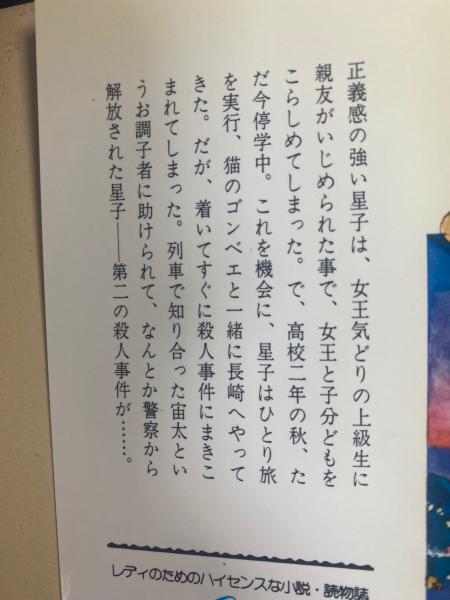 正義感の強い星子は、女王気どりの上級生に
親友がいじめられた事で、女王と子分どもを
こらしめてしまった。で、高校二年の秋、た
だ今停学中。これを機会に、星子はひとり旅
を実行、猫のゴンベエと一緒に長崎へやって
きた。だが、着いてすぐに殺人事件にまきこ
まれてしまった。列車で知り合った宙太とい
うお調子者に助けられて、なんとか警察から
解放された星子――第二の殺人事件が……。
レディのためのハイセンスな小説・読物誌